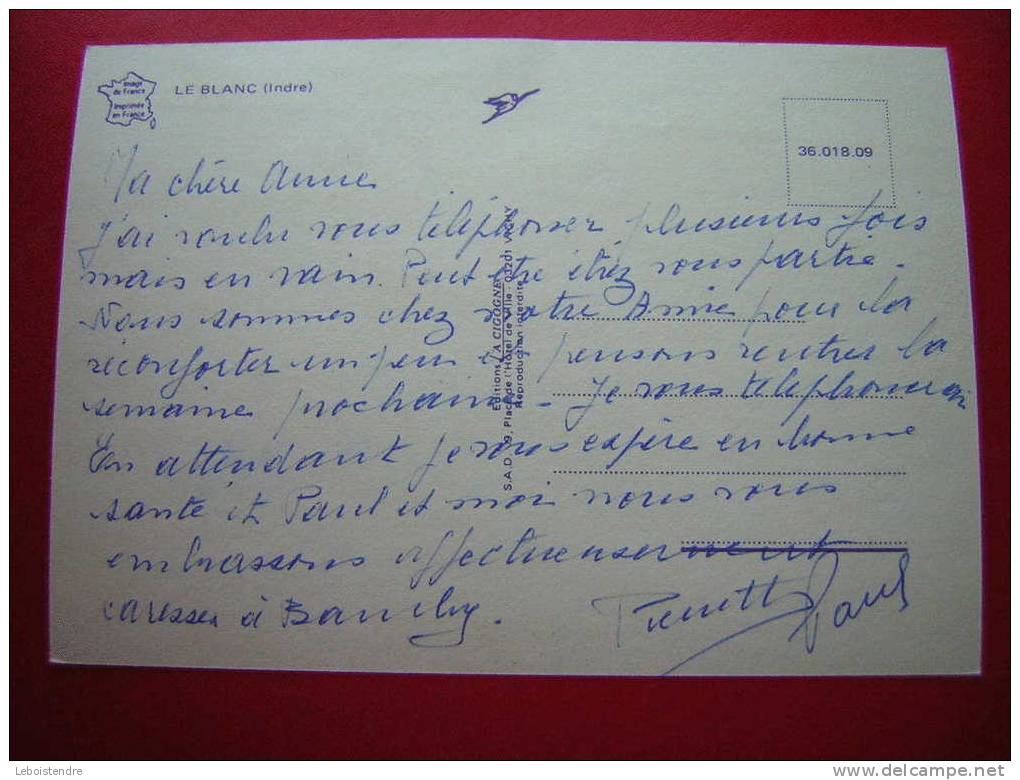 Image
de France
Imprimée
en France
LE BLANC (Indre)
36.018.09
Ma chère Annie
J'ai voulu vous téléphoner plusieurs fois
mais en vain. Peut être étiez vous partie.
Nous sommes chez notre Amie pour la
réconforter un peu et pensons rentrer la
semaine prochaine. Je vous telephonerai
En attendant je vous espère en bonne
santé et Paul et moi nous vous
embrassons affectueusement
caresses à
Pierrette Paul
Editions LA CIGOGNE
S.A.D. 19, Place de l'Hôtel de Ville - 03201 VICHY
Reproduction interdite
Leboistendre
www.delcampe.net